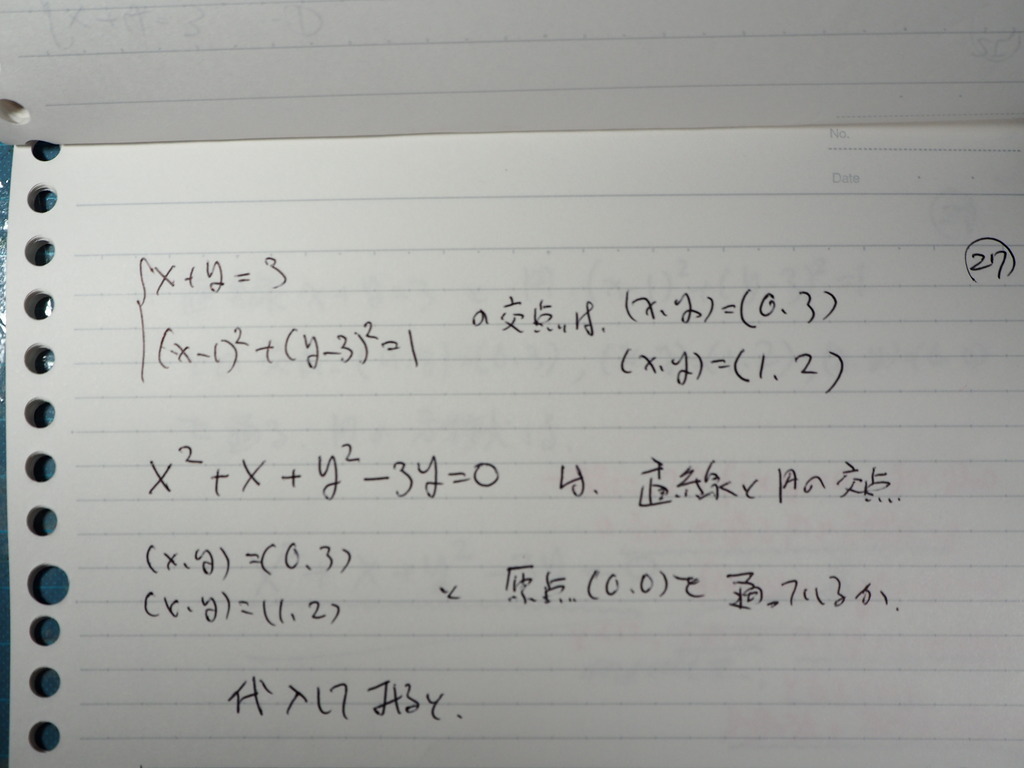 No.
Date
27
x+y=3
(x-1)²+(y-3)²=1
の交点は、(x,y)=(0,3)
(x,y)=(1,2)
x²+x+y²-3y=0 は、直線と円の交点
(x,y)=(0,3)
(x,y)=(1,2)
と 原点(0,0)を通っているか、
代入して みると、